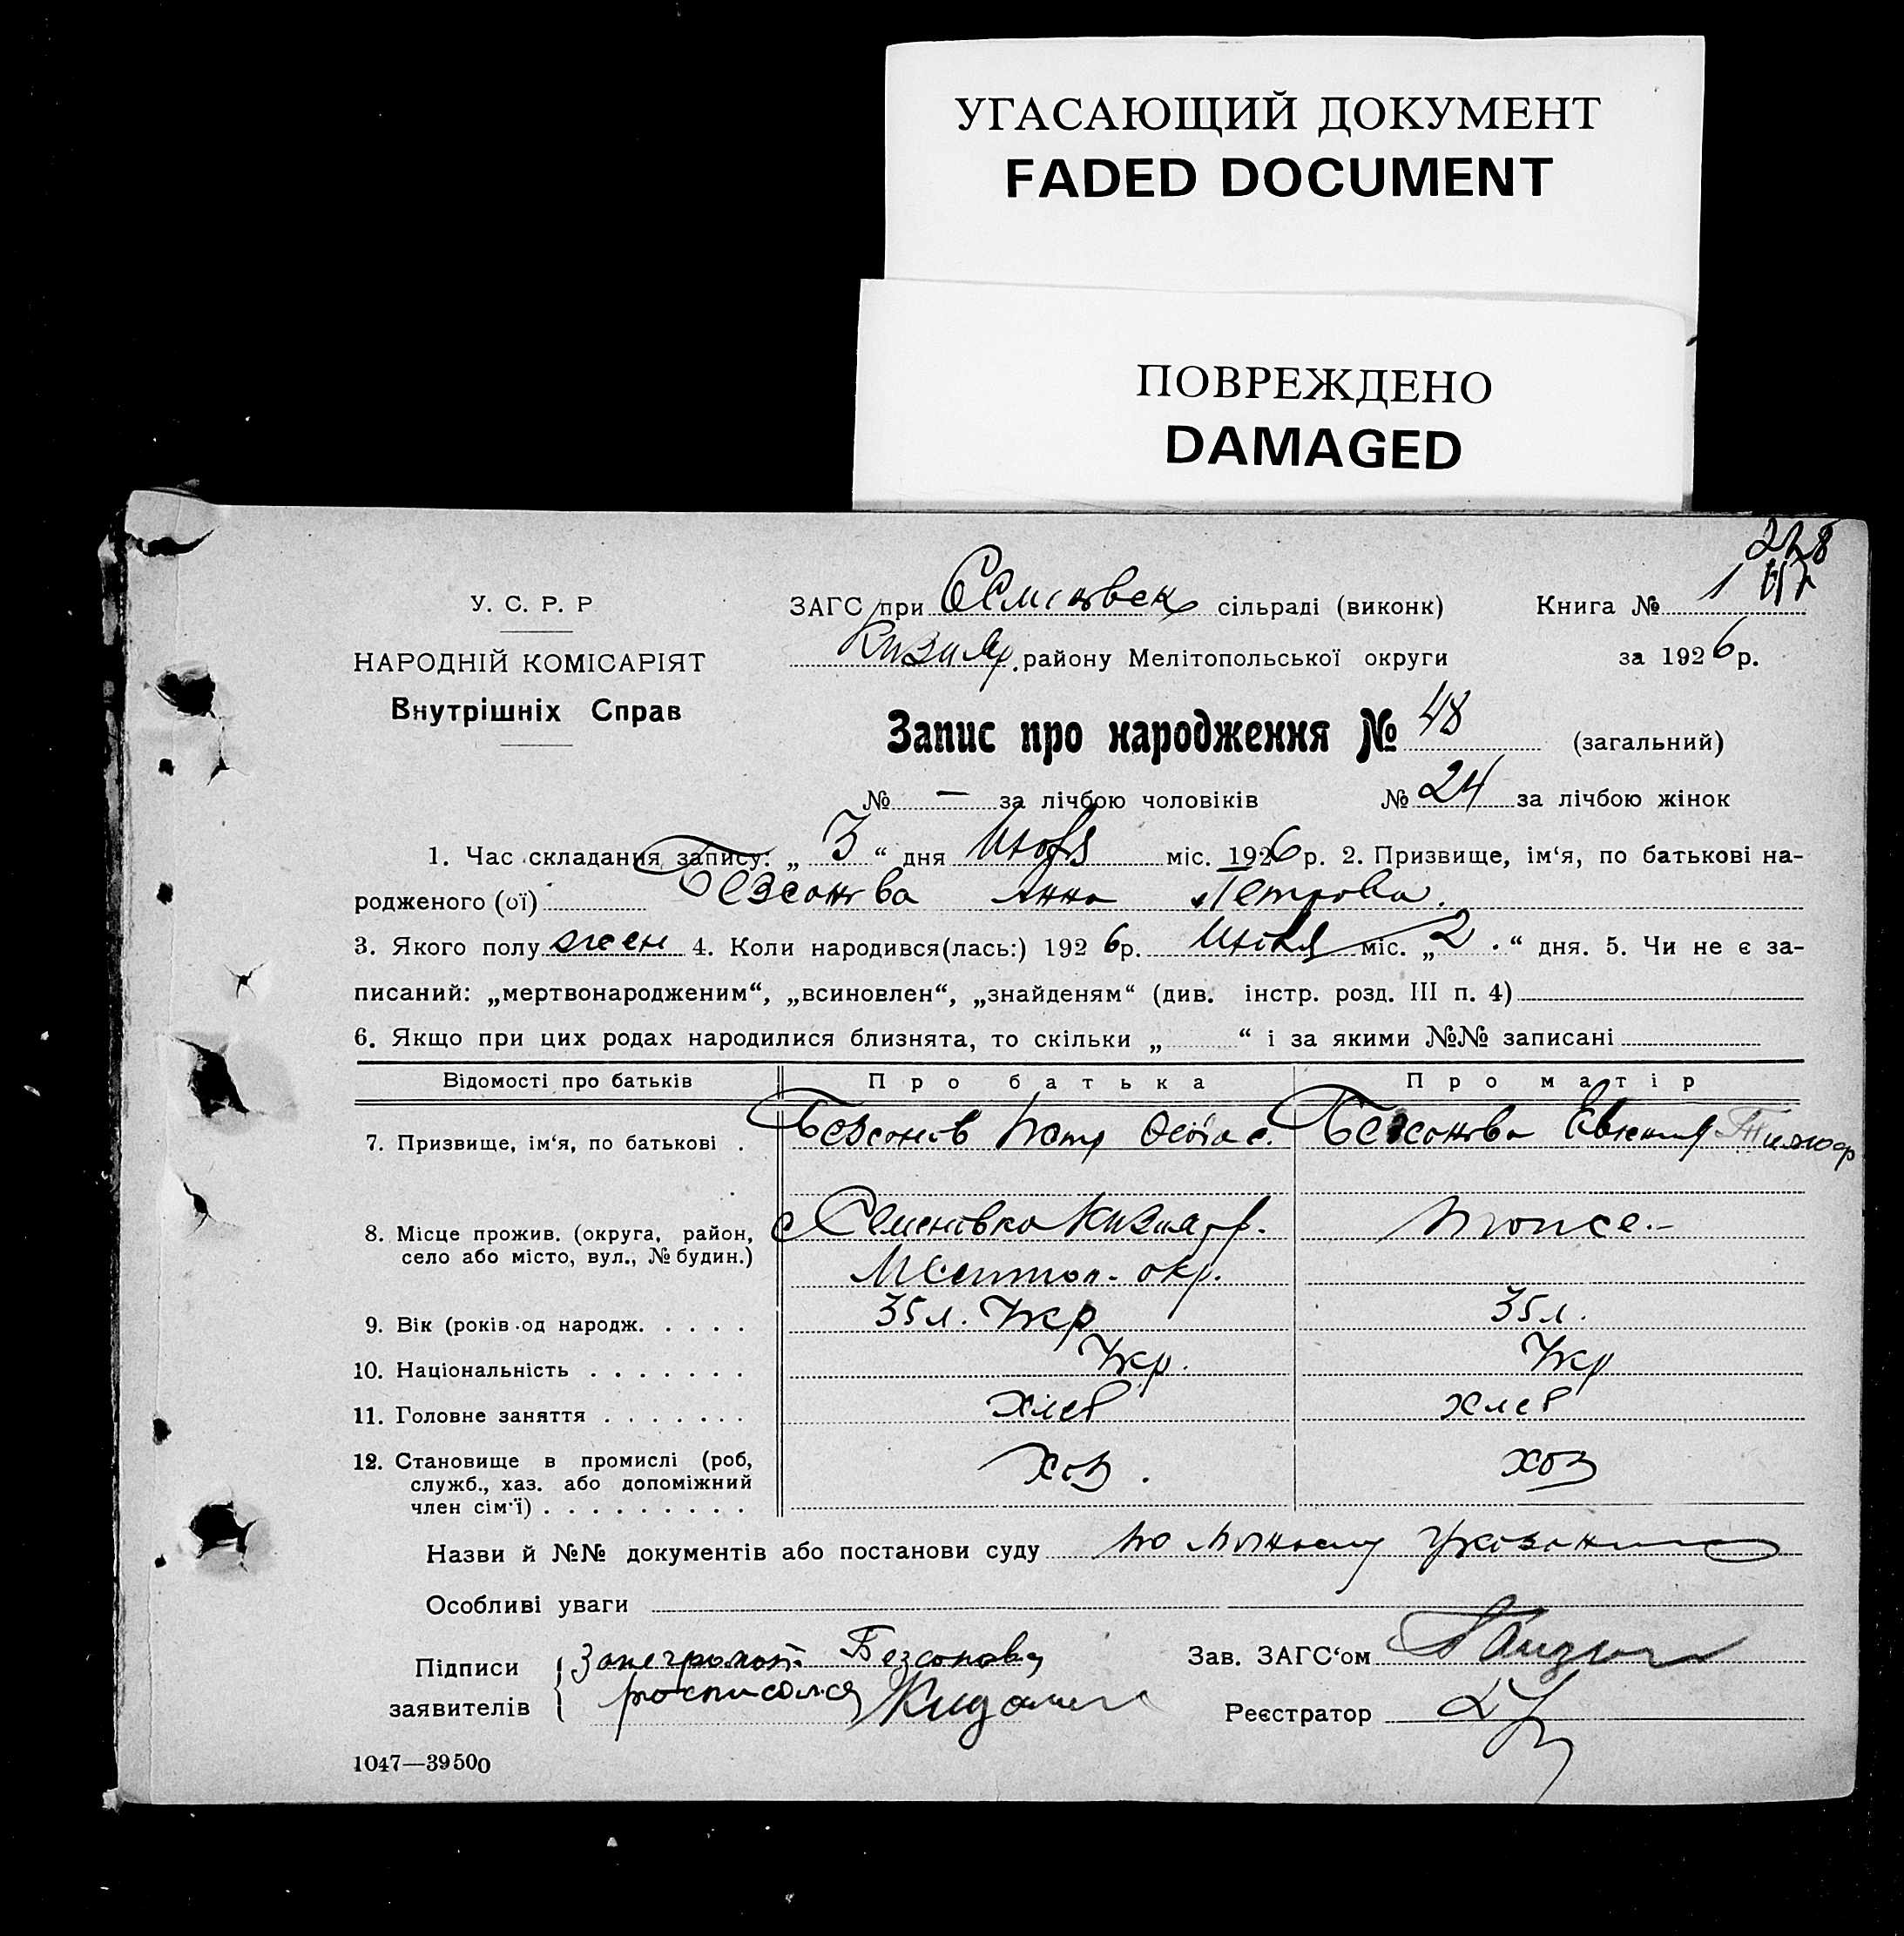 УГАСАЮЩИЙ ДОКУМЕНТ
FADED DOCUMENT
ПОВРЕЖДЕНО
DAMAGED
228
У. С. Р. Р
НАРОДНІЙ КОМІСАРІЯТ
Внутрішніх Справ
ЗАГС при сільраді (виконк) Книга № 1
району Мелітопольської округи за 1926 р.
Запис про народження № 48 (загальний)
№ — за лічбою чоловіків № 24 за лічбою жінок
1. Час складання запису: „ 3 “ дня міс. 1926 р. 2. Призвище, ім‘я, по батькові на-
родженого (ої) Безсонова Анна Петрова.
3. Якого полу жен 4. Коли народився(лась:) 192 6р. міс. „ 2 . “ дня. 5. Чи не є за-
писаний: „мертвонародженим“, „всиновлен“, „знайденям“ (див. інстр. розд. III п. 4)
6. Якщо при цих родах народилися близнята, то скільки „ “ і за якими №№ записані
Відомості про батьків Про батька Про матір
7. Призвище, ім‘я, по батькові . Безсонов Петр Безсонова Евгения
8. Місце прожив. (округа, район, с Семеновка Тоже.-
село або місто, вул., № будин.) Мелитоп. окр.
9. Вік (років од народж. . . . . 35 л. Укр 35 л.
10. Національність . . . . . . . Укр. Укр
11. Головне заняття . . . . . . . Хлеб хлеб
12. Становище в промислі (роб, Хоз . хоз
служб., хаз. або допоміжний
член сім‘ї) . . . . . . . . .
Назви й №№ документів або постанови суду по
Особливі уваги
Підписи Безсонову Зав. ЗАГС‘ом
заявителів росписался Реєстратор
1047—39500